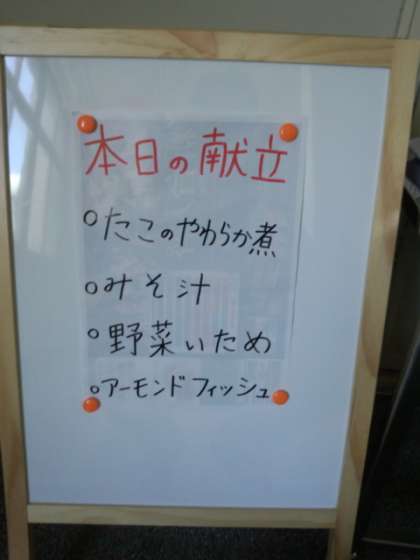 本日の献立
○たこのやわらか煮
○みそ汁
○野菜いため
○アーモンドフィッシュ